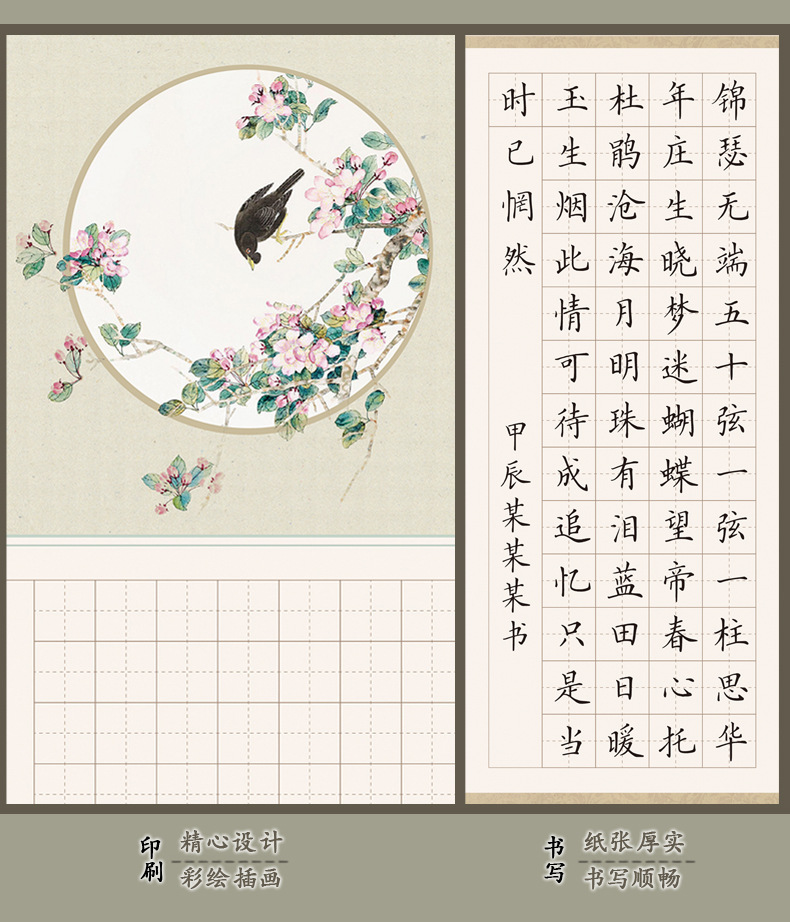 锦瑟无端五十弦一弦一柱思华
年庄生晓梦迷蝴蝶望帝春心托
杜鹃沧海月明珠有泪蓝田日暖
玉生烟此情可待成追忆只是当
时已惘然
甲辰某某某书
印刷
精心设计
彩绘插画
书写
纸张厚实
书写顺畅